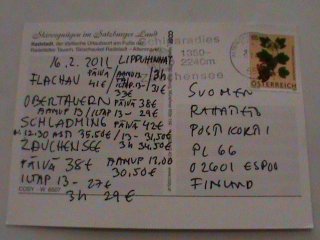 Skivergnügen im Salzburger Land
Radstadt, der idyllische Urlaubsort am Fuße der
Radstädter Tauern. Skischaukel Radstadt - Altenmarkt
Skiparadies
1350-
2240m
Zauchensee
16.2.2011 LIPPUHINNAT
FLACHAU PÄIVÄ 41€ 3h
OBERTAUERN PÄIVÄ 38€
AAMUP 13/ILTAP 13- 29€
SCHLADMING PÄIVÄ 42€
12.30 ASTI 35,50€ /13- 31,50€
ZAUCHENSEE 3h 34,50€
PÄIVÄ 38€ AAMUP 13.00
ILTAP 13- 27€ 30,50€
3h 29€
COSY W 6507
SUOMEN
POSTIKORTI
PL 66
02601 ESPOO
FINLAND